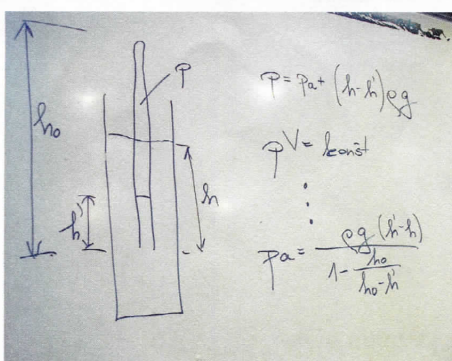 h₀
p
h
h'
p = pₐ + (h-h')ρg
pV = konst
⋮
pa = ρg(h'-h) / 1 - h₀/h₀-h'